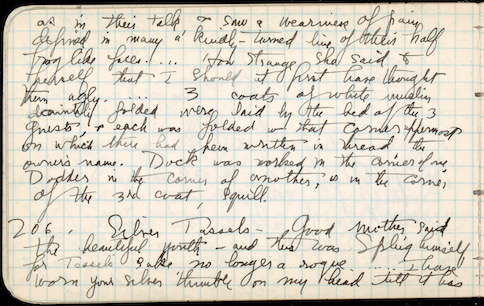 as in their talk & saw a weariness of pain
defined in many a kindly-turned line of their half
frog like faces.... How strange she said to
herself that I should at first have thought
them ugly. .... 3 coats of white muslin
daintily folded were laid by the bed of the 3
guests, & each was folded so that corner uppermost
on which there had been written in thread the
owner's name. Dock was worked in the corner of one,
Dodder in the corner of another, & in the corner
of the 3rd coat, Squill.
206. Silver Tassels - Good mother, said
the beautiful youth - and this was Sprig himself
for Tassel's sake no longer a rogue ... I have
worn your silver thimble on my head till it has